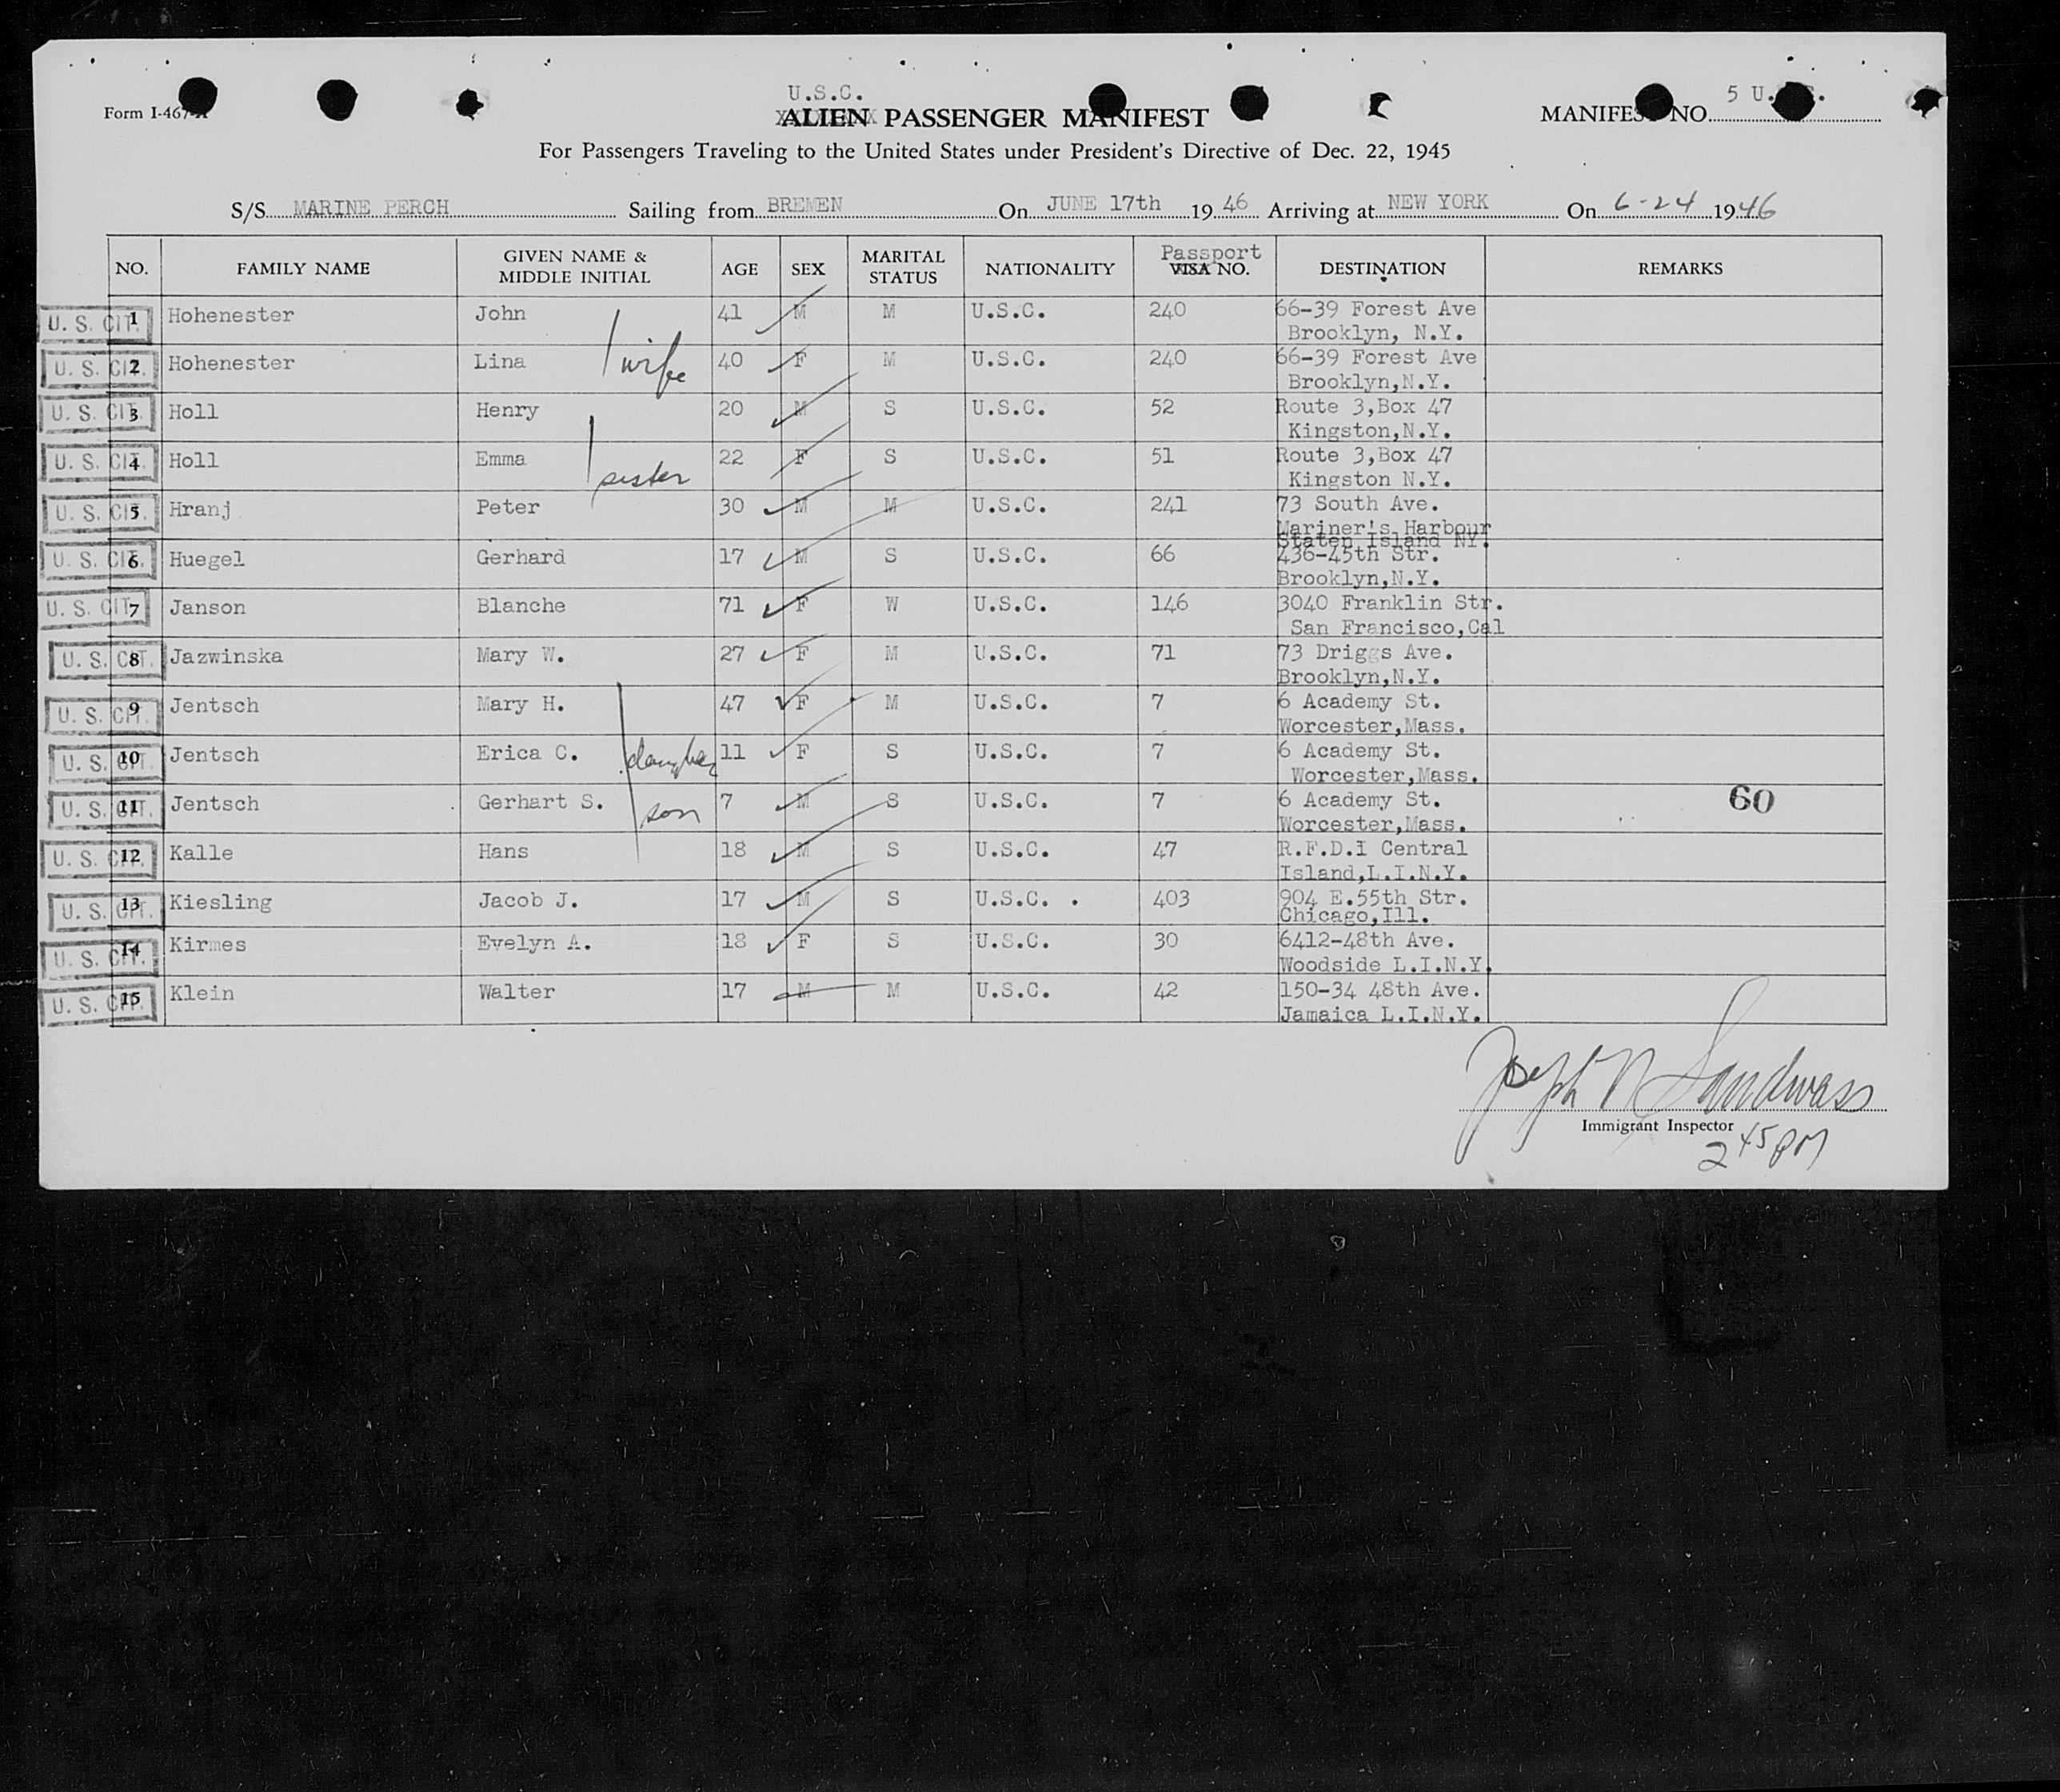 U.S.C.
Form I-467-A
ALIEN PASSENGER MANIFEST
MANIFEST NO. 5 U.
For Passengers Traveling to the United States under President's Directive of Dec. 22, 1945
S/S MARINE PERCH Sailing from BREMEN On JUNE 17th 19 46 Arriving at NEW YORK On 6-24 1946
NO. FAMILY NAME GIVEN NAME & MIDDLE INITIAL AGE SEX MARITAL STATUS NATIONALITY Passport VISA NO. DESTINATION REMARKS
U. S. CIT. 1 Hohenester John 41 M M U.S.C. 240 66-39 Forest Ave
Brooklyn, N.Y.
U. S. CIT. 2 Hohenester Lina wife 40 F M U.S.C. 240 66-39 Forest Ave
Brooklyn,N.Y.
U. S. CIT. 3 Holl Henry 20 M S U.S.C. 52 Route 3,Box 47
Kingston,N.Y.
U. S. CIT. 4 Holl Emma sister 22 F S U.S.C. 51 Route 3,Box 47
Kingston N.Y.
U. S. CIT. 5 Hranj Peter 30 M M U.S.C. 241 73 South Ave.
Mariner's Harbour
Staten Island NY.
U. S. CIT. 6 Huegel Gerhard 17 M S U.S.C. 66 436-45th Str.
Brooklyn,N.Y.
U. S. CIT. 7 Janson Blanche 71 F W U.S.C. 146 3040 Franklin Str.
San Francisco,Cal
U. S. CIT. 8 Jazwinska Mary W. 27 F M U.S.C. 71 73 Driggs Ave.
Brooklyn,N.Y.
U. S. CIT. 9 Jentsch Mary H. 47 F M U.S.C. 7 6 Academy St.
Worcester,Mass.
U. S. CIT. 10 Jentsch Erica C. daughter 11 F S U.S.C. 7 6 Academy St.
Worcester,Mass.
U. S. CIT. 11 Jentsch Gerhart S. son 7 M S U.S.C. 7 6 Academy St. 60
Worcester,Mass.
U. S. CIT. 12 Kalle Hans 18 M S U.S.C. 47 R.F.D.I Central
Island,L.I.N.Y.
U. S. CIT. 13 Kiesling Jacob J. 17 M S U.S.C. . 403 904 E.55th Str.
Chicago,Ill.
U. S. CIT. 14 Kirmes Evelyn A. 18 F S U.S.C. 30 6412-48th Ave.
Woodside L.I.N.Y.
U. S. CIT. 15 Klein Walter 17 M M U.S.C. 42 150-34 48th Ave.
Jamaica L.I.N.Y.
Joseph N Sandwass
Immigrant Inspector
2 45 PM